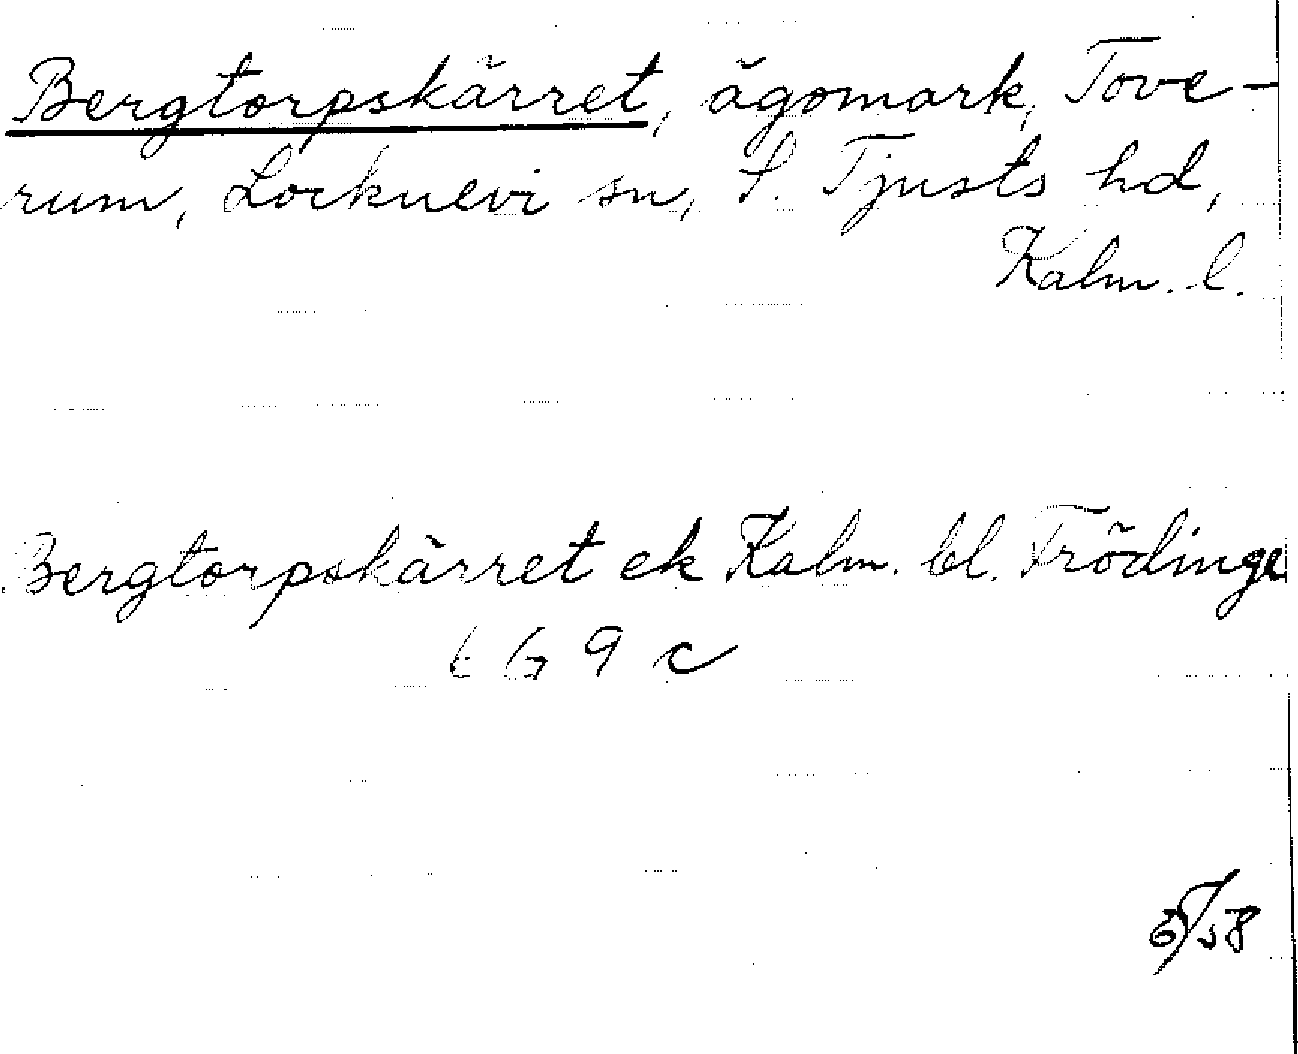 Bergtorpskärret, ägomark, Tove-
rum, Locknevi sn, S. Tjusts hd,
Kalm. l.
Bergtorpskärret ek Kalm. bl. Frödinge
t G 9 c
/58